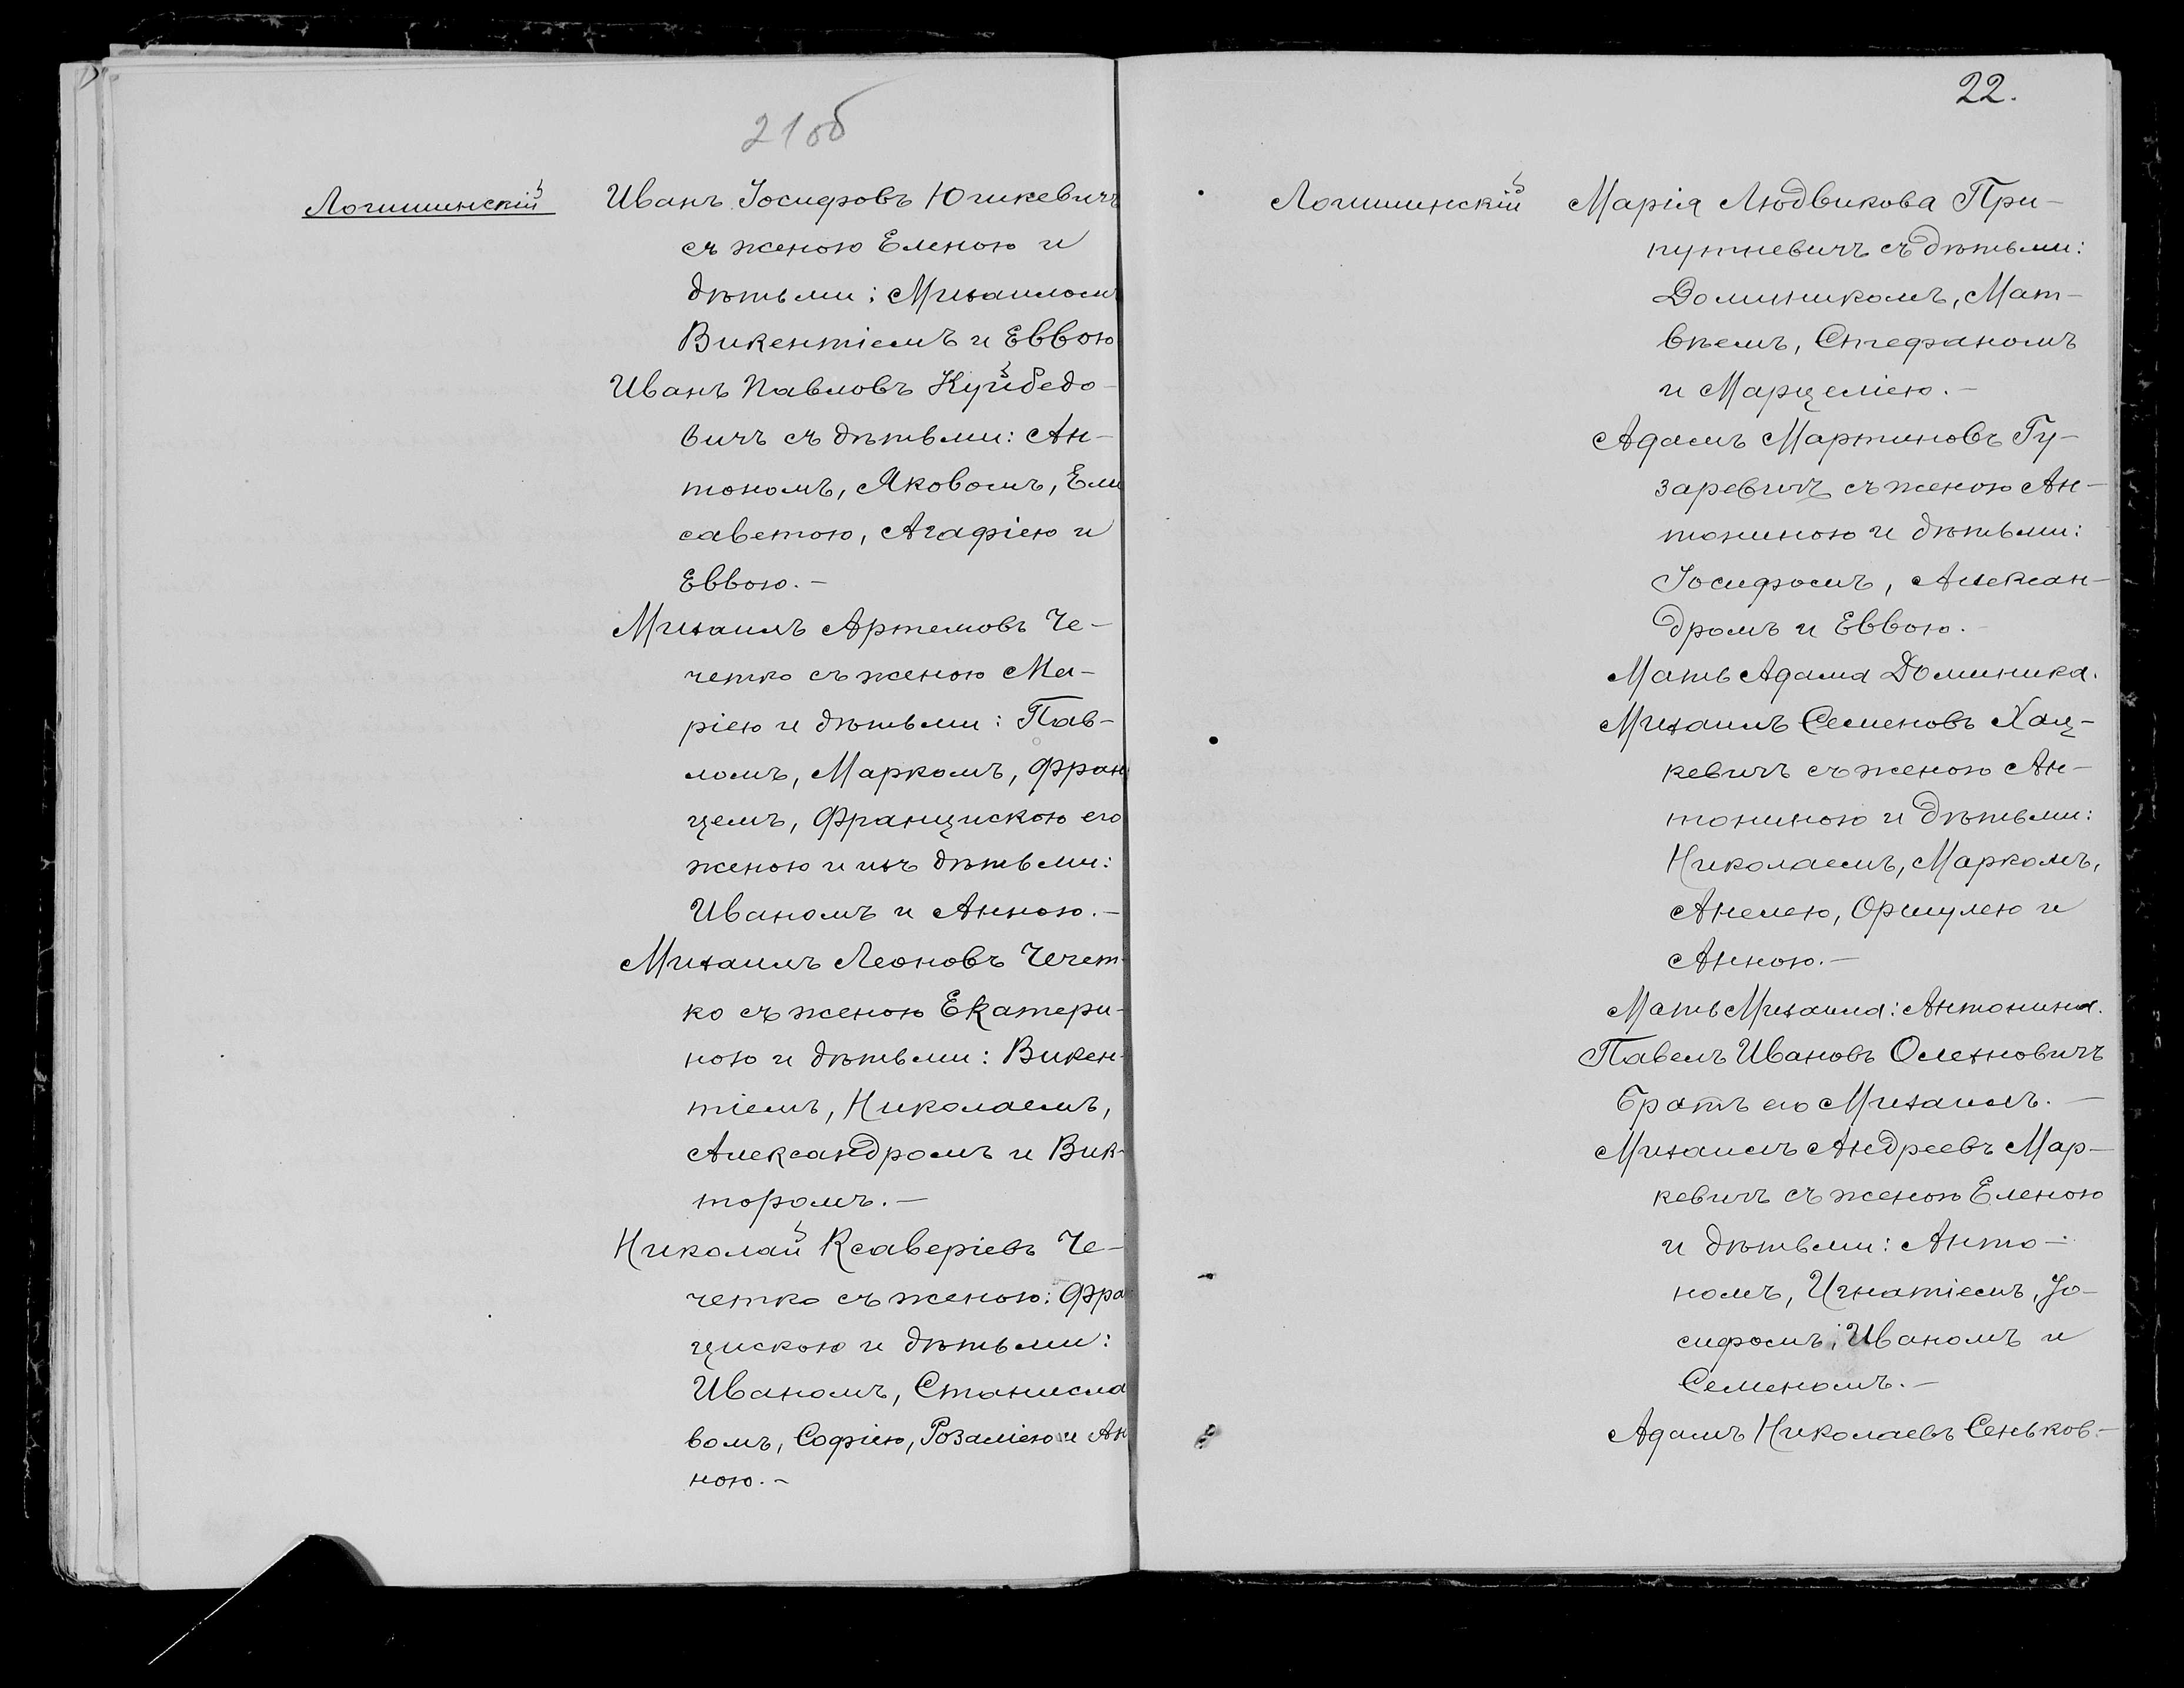 21об
Логишинскій
Иванъ Іосифовъ Юшкевичъ
съ женою Еленою и
дѣтьми: Михаиломъ
Викентіемъ и Еввою
Иванъ Павловъ Куйбедо-
вичъ съ дѣтьми: Ан-
тономъ, Яковомъ, Ели
саветою, Агафіею и
Еввою.-
Михаилъ Артемовъ Че-
четко съ женою Ма-
ріею и дѣтьми: Пав-
ломъ, Маркомъ, Фран
цемъ, Францискою его
женою и ихъ дѣтьми:
Иваномъ и Анною.-
Михаилъ Леоновъ Чечет-
ко съ женою Екатери-
ною и дѣтьми: Викен-
тіемъ, Николаемъ,
Александромъ и Вик-
торомъ.-
Николай Ксаверіевъ Че-
четко съ женою: Фра
цискою и дѣтьми:
Иваномъ, Станисла
вомъ, Софіею, Розаліею и Ан
ною.-
22.
Логишинскій
Марія Людвикова При-
путневичъ съ дѣтьми:
Доминикомъ, Мат-
вѣемъ, Стефаномъ
и Марцеліею.-
Адамъ Мартиновъ Гу-
заревичъ съ женою Ан-
тониною и дѣтьми:
Іосифомъ, Алексан-
дромъ и Еввою.-
Мать Адама Доминика.
Михаилъ Семеновъ Хац-
кевичъ съ женою Ан-
тониною и дѣтьми:
Николаемъ, Маркомъ,
Анелею, Оршулею и
Анною.-
Мать Михаила: Антонина.
Павелъ Ивановъ Олехновичъ
Братъ его Михаилъ.-
Михаилъ Андреевъ Мар-
кевичъ съ женою Еленою
и дѣтьми: Анто-
номъ, Игнатіемъ, Іо-
сифомъ, Иваномъ и
Семеномъ.-
Адамъ Николаевъ Сеньков-